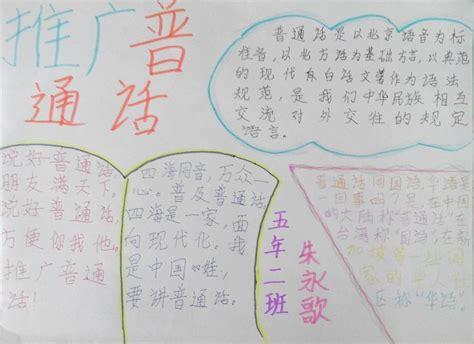 推广普
通话
普通话是以北京语音为标
准音,以北方话为基础方言,以典范
的现代有白话文著作为语法
规范,是我们中华民族相互
交流对外交往的规定
语言。
说好普通话,
朋友满天下。
说好普通话,
方便你我他。
推广普通
话!
四海同音,万众一
心。普及普通话
四海是一家,面
向现代化。我
是中国娃,
要讲普通话。
五年二班
朱永歌
普通话同国语,华语是
一回事
大陆称 在中国
台湾称
加坡
家
区称"华语"。